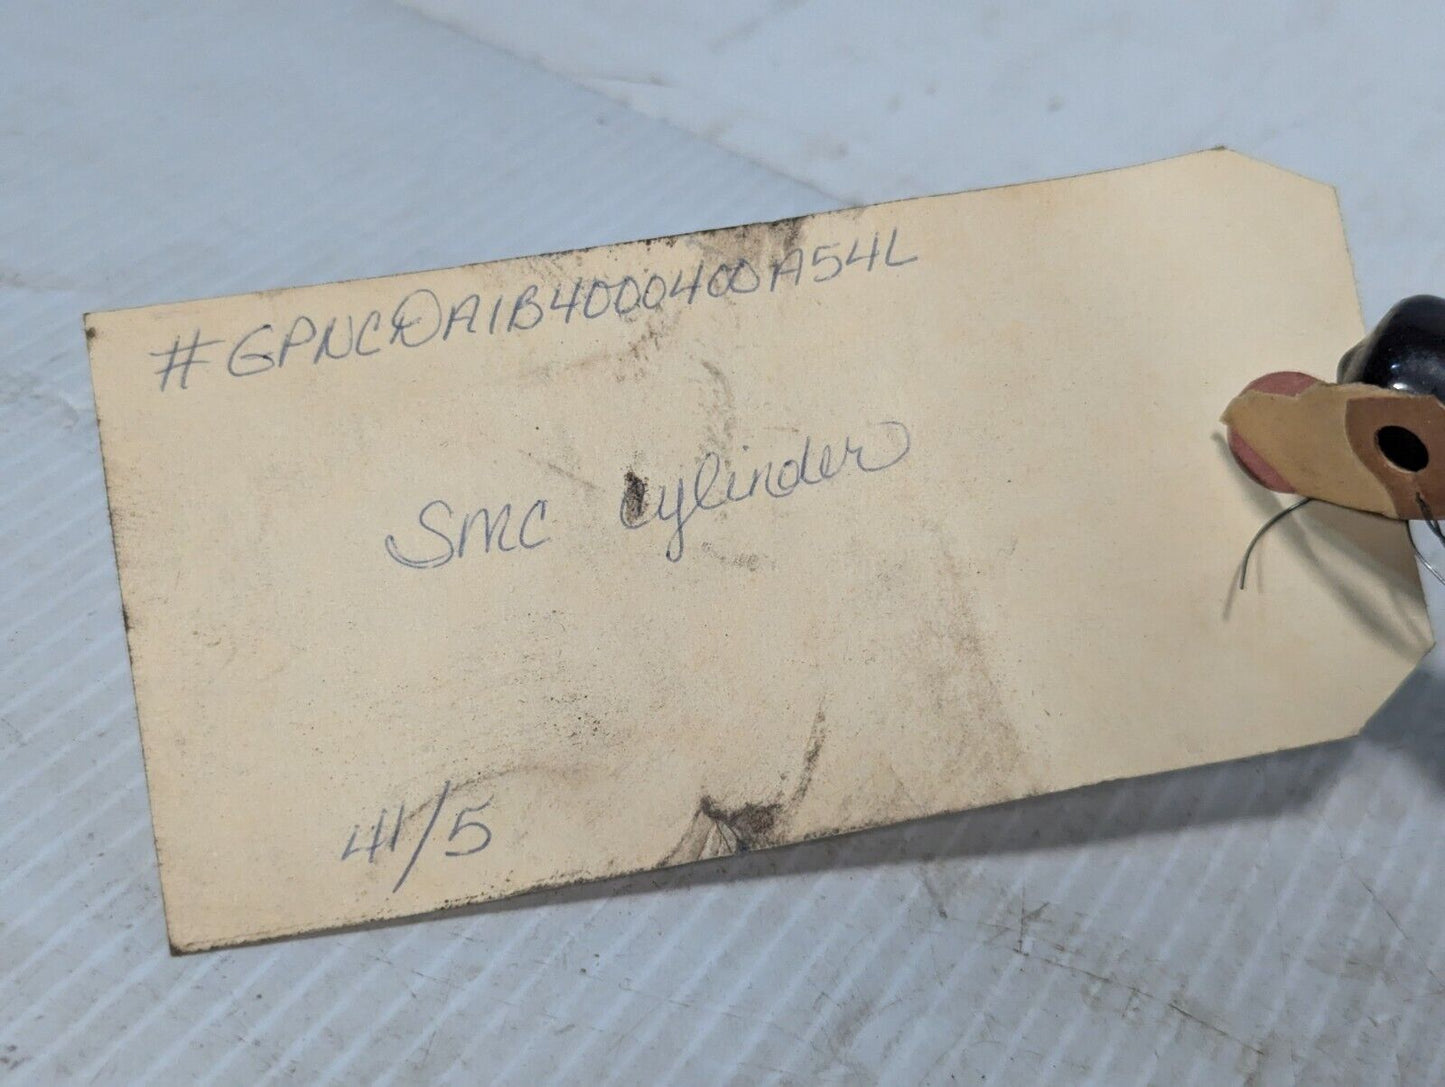 #GPNCDA1B4000400A54L
SMC Cylinder
41/5